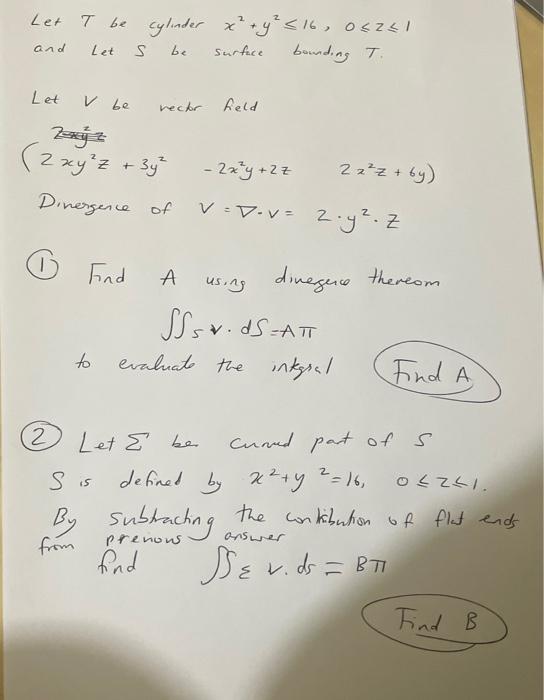 Let T be cylinder x² + y² ≤ 16, 0 ≤ z ≤ 1
and Let S be surface bounding T.
Let V be vector field
(2xy²z + 3y² - 2x²y + 2z 2x²z + 6y)
Divergence of V = ∇·v = 2·y²·z
① Find A using divegence thereom
∬s v·dS = Aπ
to evaluate the integral Find A
② Let Σ be curved part of S
S is defined by x² + y² = 16, 0 ≤ z ≤ 1.
By subtracting the contribution of flat ends
from previous answer
find ∬Σ v.ds = Bπ
Find B